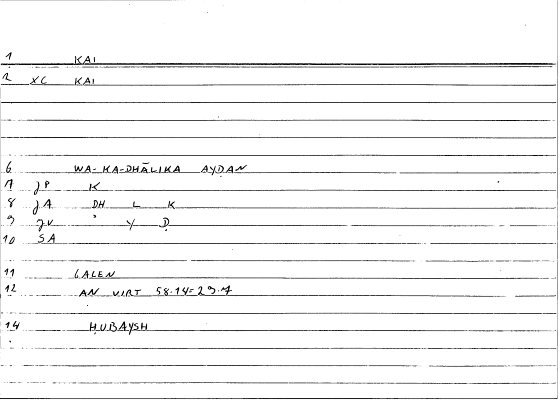 1 KAI
2 XC KAI
6 WA-KA-DHĀLIKA AYḌAN
7 JP K
8 JA DH L K
9 JV ʾ Y Ḍ
10 SA
11 GALEN
12 AN VIRT 58.14=29.7
14 ḤUBAYSH